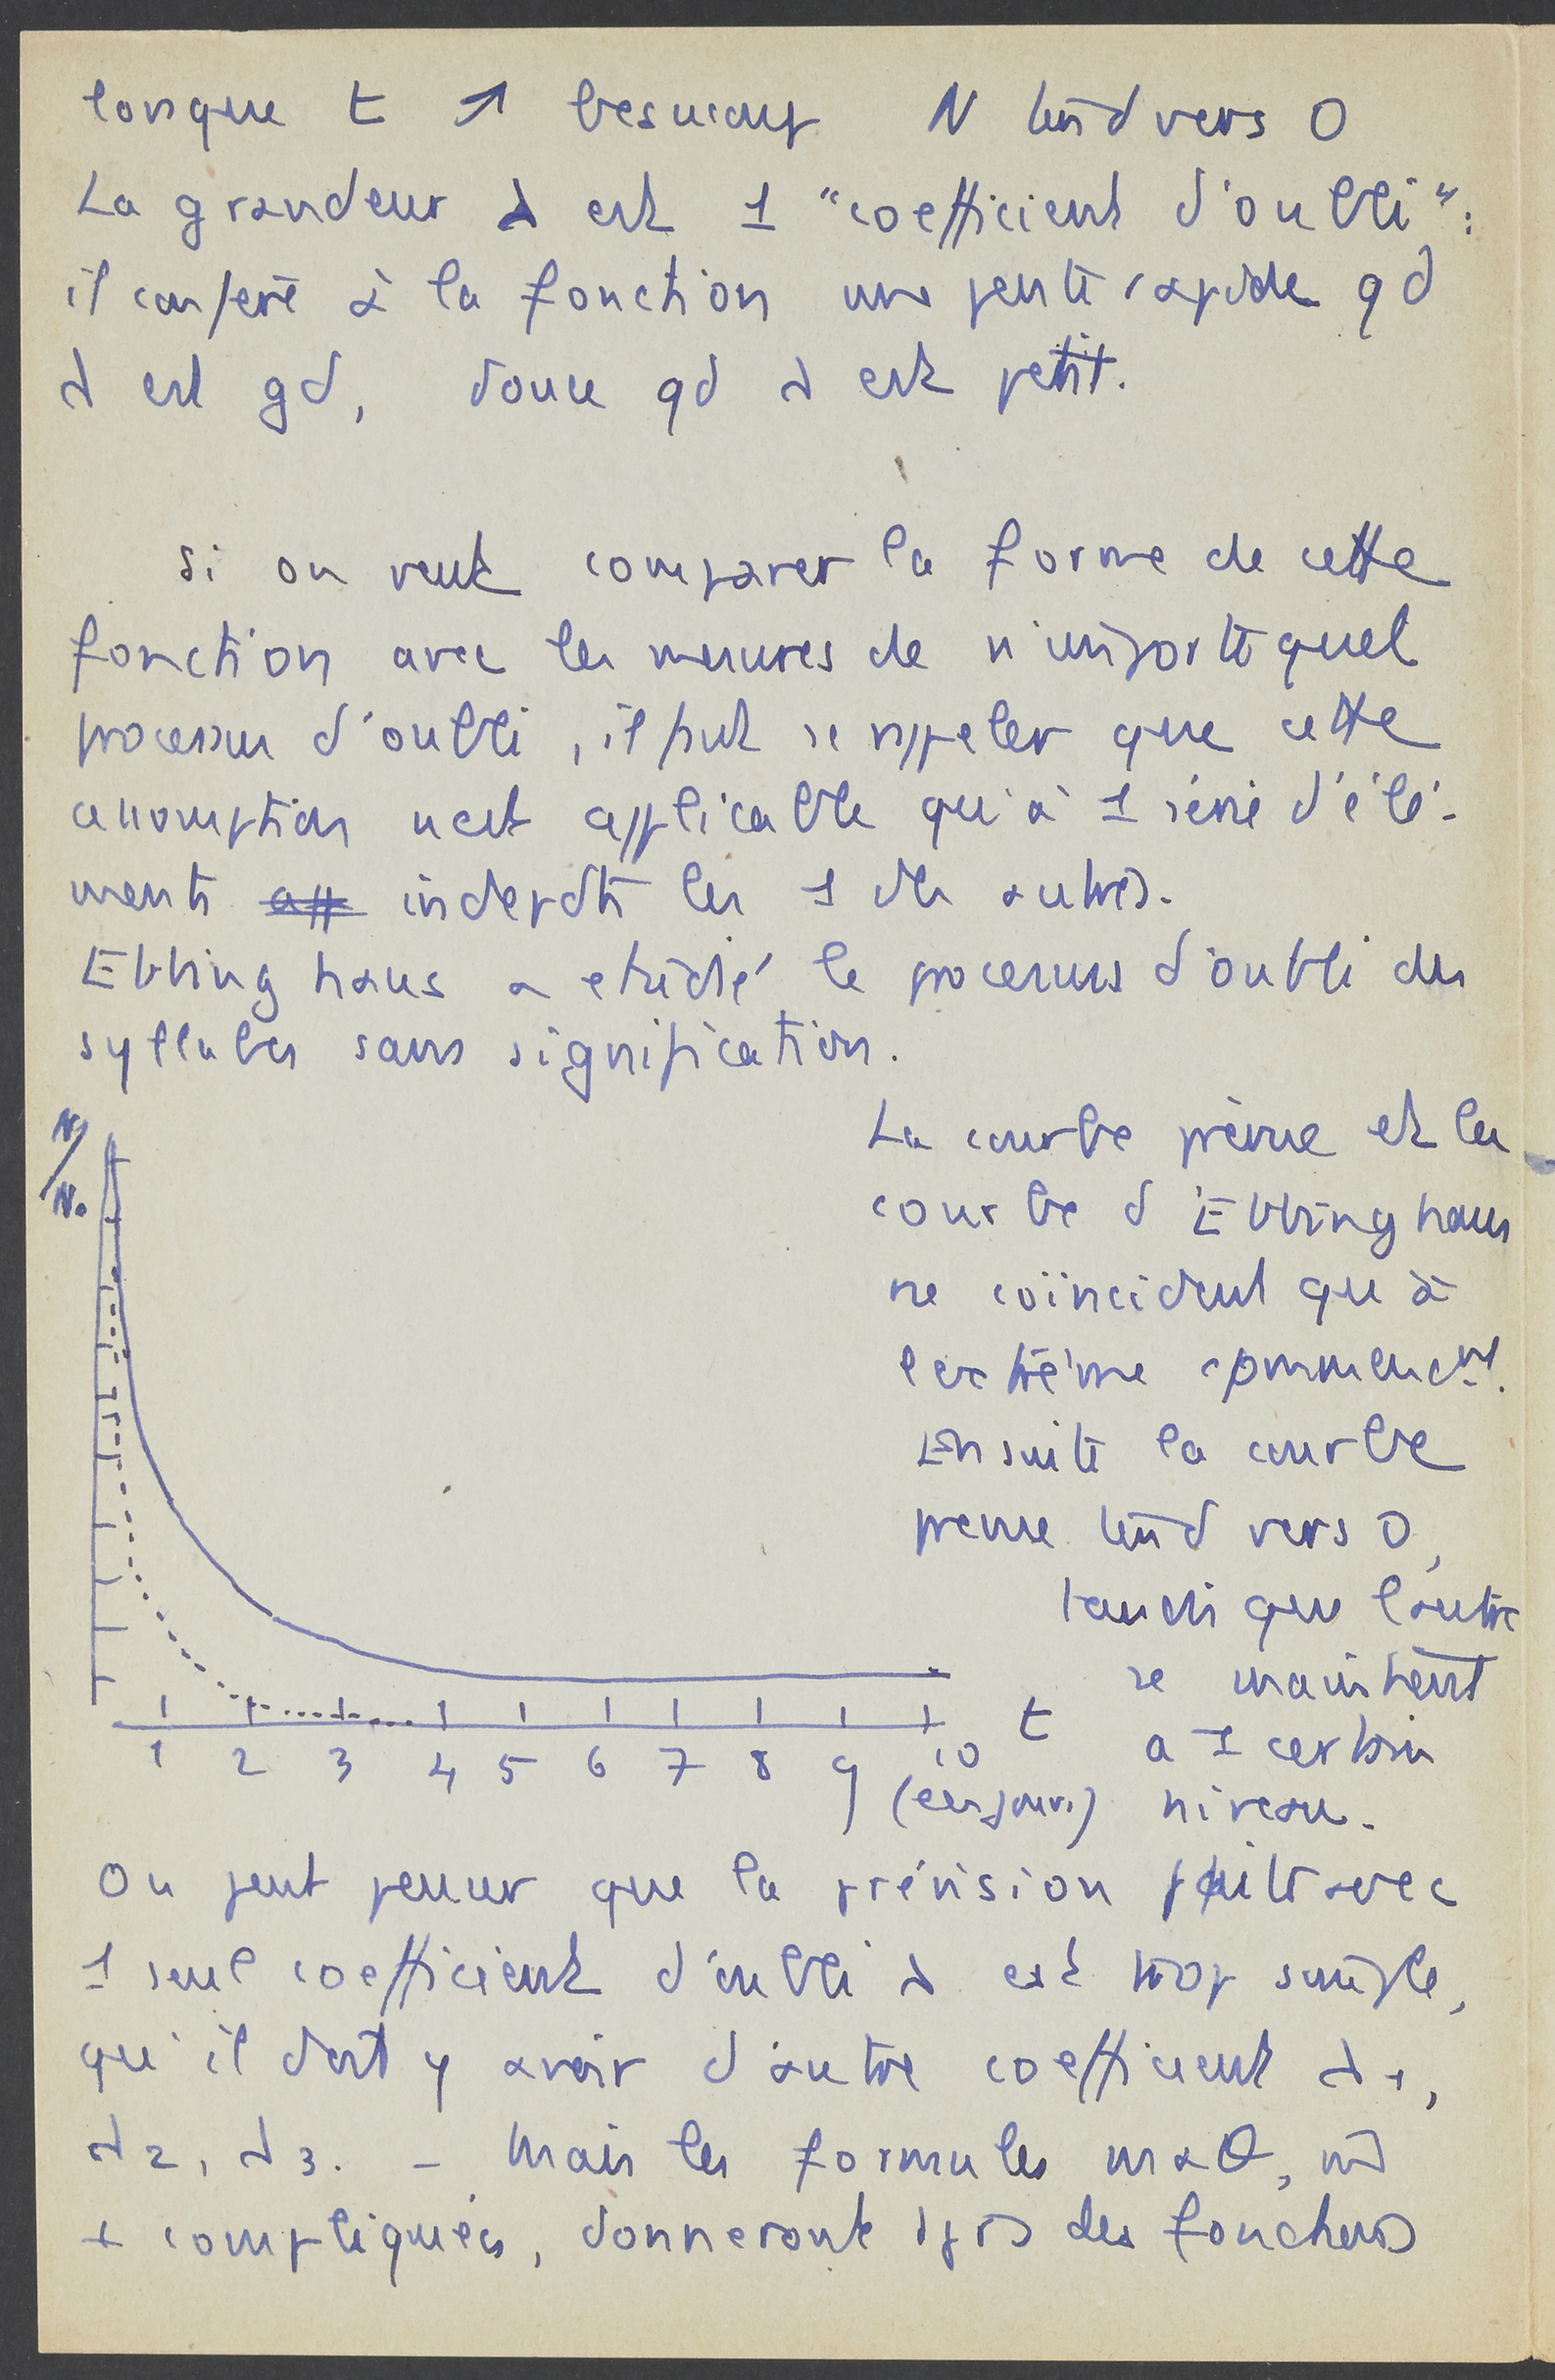 lorsque t ↗ beaucoup N tend vers 0
La grandeur λ est 1 "coefficient d'oubli":
il confère à la fonction une pente rapide qd
λ est gd, douce qd λ est petit.
si on veut comparer la forme de cette
fonction avec les mesures de n'importe quel
processus d'oubli, il faut se rappeler que cette
assomption n'est applicable qu'à 1 série d'élé-
ments indepdts les 1 des autres.
Ebbinghaus a etudié le processus d'oubli des
syllabes sans signification.
N/N₀
La courbe prévue et la
courbe d'Ebbinghaus
ne coïncident qu'à
l'extrême commencnt.
Ensuite la courbe
prevue tend vers 0,
tandis que l'autre
se maintient
a 1 certain
niveau.
1 2 3 4 5 6 7 8 9 10 t
(en jours)
On peut penser que la prévision faite avec
1 seul coefficient d'oubli λ est trop simple,
qu'il doit y avoir d'autre coefficient λ1,
λ2, λ3. - Mais les formules maθ, m̄
+ compliquées, donneront tjrs des fonctions